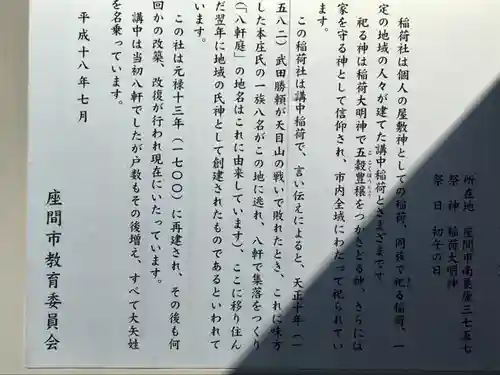 所在地　座間市南栗原三七五七
祭　神　稲荷大明神
祭　日　初午の日
稲荷社は個人の屋敷神としての稲荷、同族で祀る稲荷、一
定の地域の人々が建てた講中稲荷とさまざまです。
祀る神は稲荷大明神で五穀豊穣をつかさどる神、さらには
家を守る神として信仰され、市内全域にわたって祀られてい
ます。
この稲荷社は講中稲荷で、言い伝えによると、天正十年（一
五八二）武田勝頼が天目山の戦いで敗れたとき、これに味方
した本庄氏の一族八名がこの地に逃れ、八軒で集落をつくり
（「八軒庭」の地名はこれに由来しています）、ここに移り住ん
だ翌年に地域の氏神として創建されたものであるといわれて
います。
この社は元禄十三年（一七〇〇）に再建され、その後も何
回かの改築、改修が行われ現在にいたっています。
講中は当初八軒でしたが戸数もその後増え、すべて大矢姓
を名乗っています。
平成十八年七月
座間市教育委員会